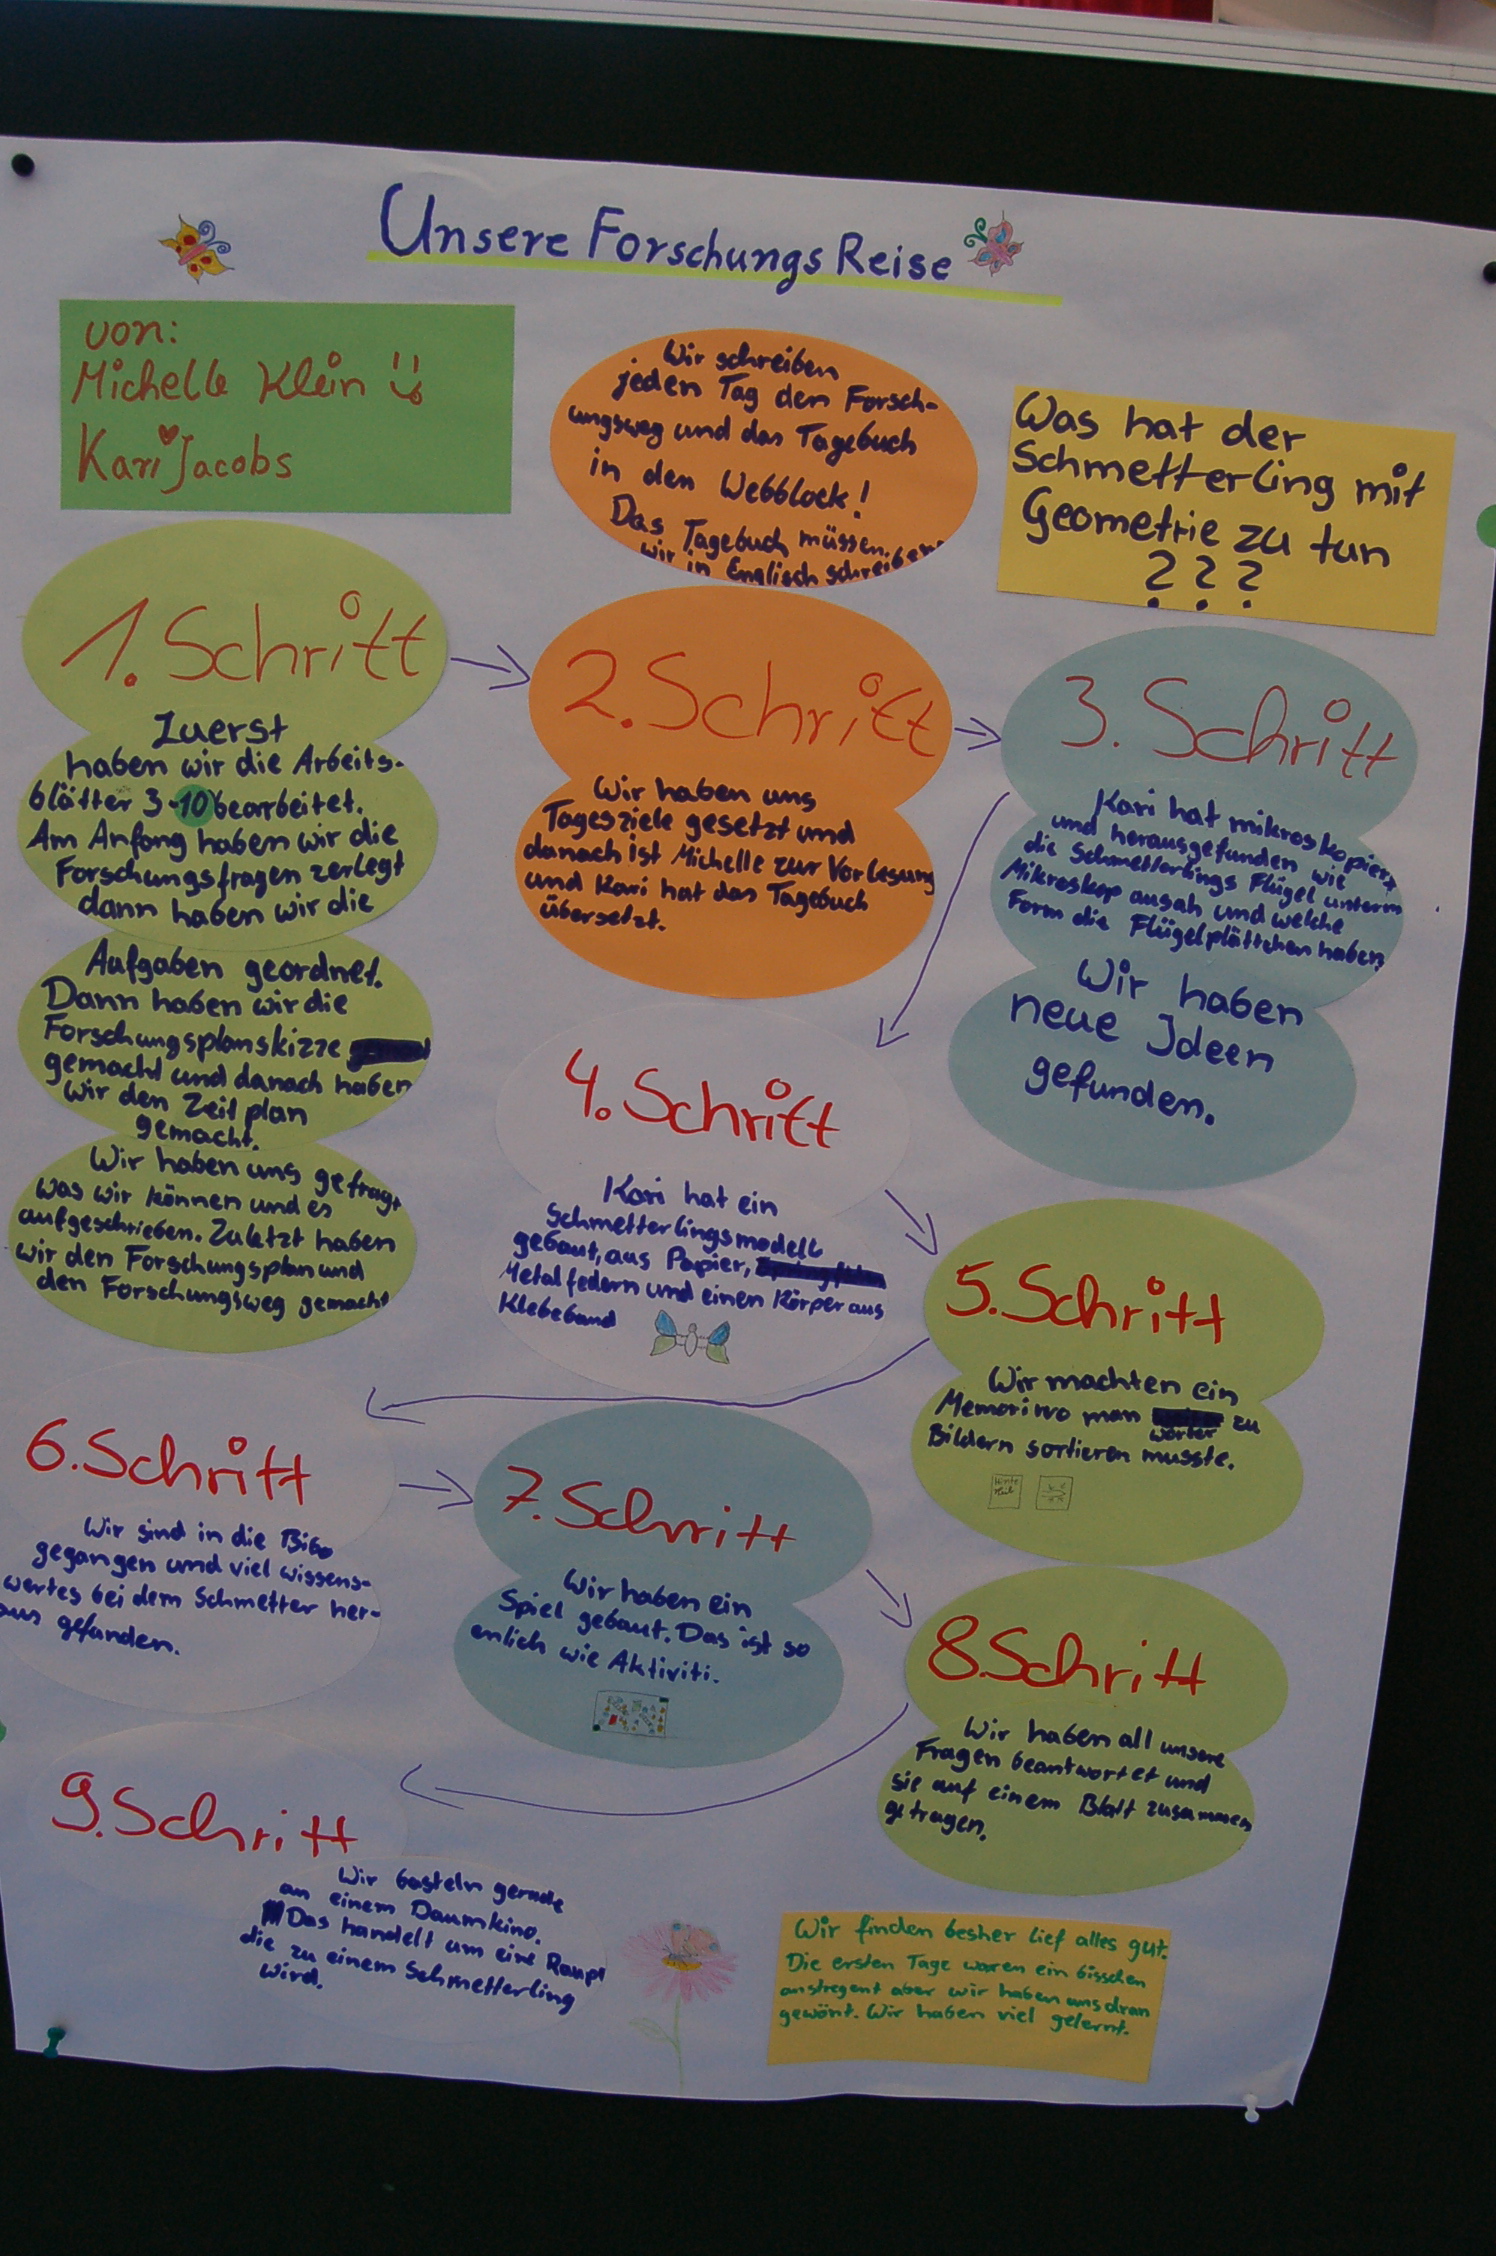 Unsere Forschungs Reise
von:
Michelle Klein
Kari Jacobs
Wir schreiben
jeden Tag den Forsch-
ungsweg und das Tagebuch
in den Webblock!
Das Tagebuch müssen
wir in Englisch schreiben
Was hat der
Schmetterling mit
Geometrie zu tun
? ? ?
1. Schritt
Zuerst
haben wir die Arbeits-
blätter 3-10 bearbeitet.
Am Anfang haben wir die
Forschungsfragen zerlegt
dann haben wir die
Aufgaben geordnet.
Dann haben wir die
Forschungsplanskizze
gemacht und danach haben
wir den Zeitplan
gemacht.
Wir haben uns gefragt
was wir können und es
aufgeschrieben. Zuletzt haben
wir den Forschungsplan und
den Forschungsweg gemacht
2. Schritt
Wir haben uns
Tagesziele gesetzt und
danach ist Michelle zur Vorlesung
und Kari hat das Tagebuch
übersetzt.
3. Schritt
Kari hat mikroskopiert
und herausgefunden wie
die Schmetterlings Flügel unterm
Mikroskop ausah und welche
Form die Flügelplättchen haben
Wir haben
neue Ideen
gefunden.
4. Schritt
Kari hat ein
Schmetterlingsmodell
gebaut, aus Papier,
Metalfedern und einen Körper aus
Klebeband
5. Schritt
Wir machten ein
Memori wo man wörter zu
Bildern sortieren musste.
6. Schritt
Wir sind in die Bibo
gegangen und viel wissens-
wertes bei dem Schmetter her-
aus gefunden.
7. Schritt
Wir haben ein
Spiel gebaut. Das ist so
enlich wie Aktiviti.
8. Schritt
Wir haben all unsere
Fragen beantwortet und
sie auf einem Blatt zusammen
getragen.
9. Schritt
Wir basteln gerade
an einem Daumkino.
Das handelt um eine Raupe
die zu einem Schmetterling
wird.
Wir finden besher lief alles gut.
Die ersten Tage waren ein bisschen
anstregent aber wir haben uns dran
gewönt. Wir haben viel gelernt.